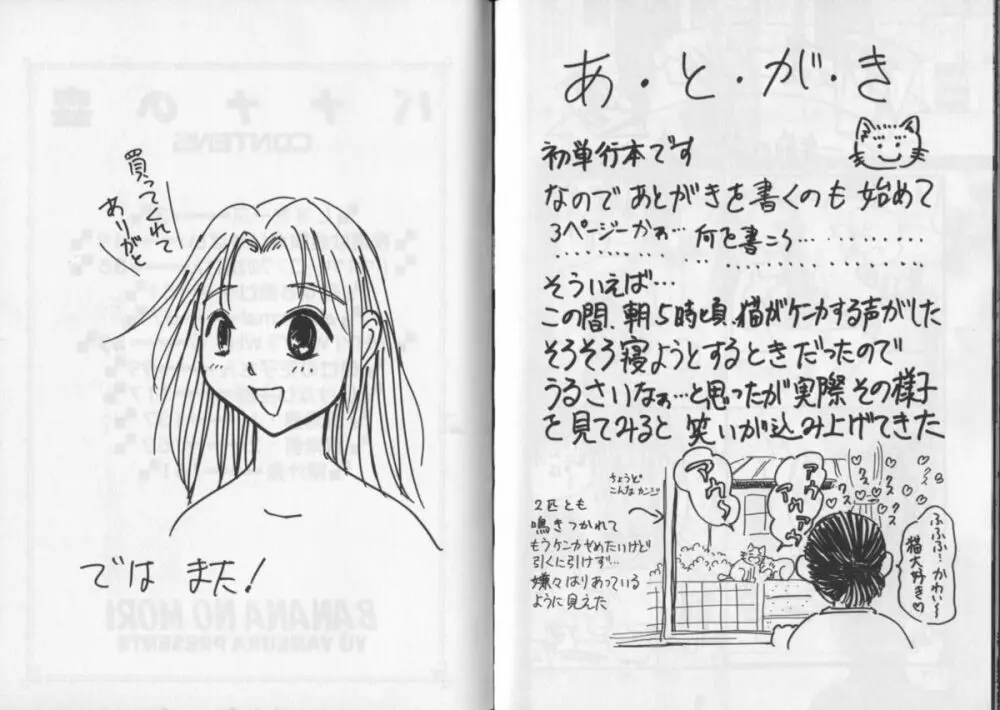 あ・と・が・き
初単行本です
なので あとがきを書くのも 始めて
3ページーかぁ… 何を書こう…
そういえば…
この間、朝5時頃、猫がケンカする声がした
そろそろ寝ようとするときだったので
うるさいなぁ…と思ったが実際その様子
を見てみると 笑いが込み上げてきた
ちょうど
こんなカンジ
2匹とも
鳴きつかれて
もうケンカやめたいけど
引くに引けず…
嫌々はりあっている
ように見えた
アウ〜
アウ
アウアウ〜
クス
クス
クス
クス
ふふふ…かわい〜
猫大好き♡
買ってくれて
ありがと
では また!
バナナの森
CONTENS
BANANA NO MORI
YU YANEURA PRESENTS